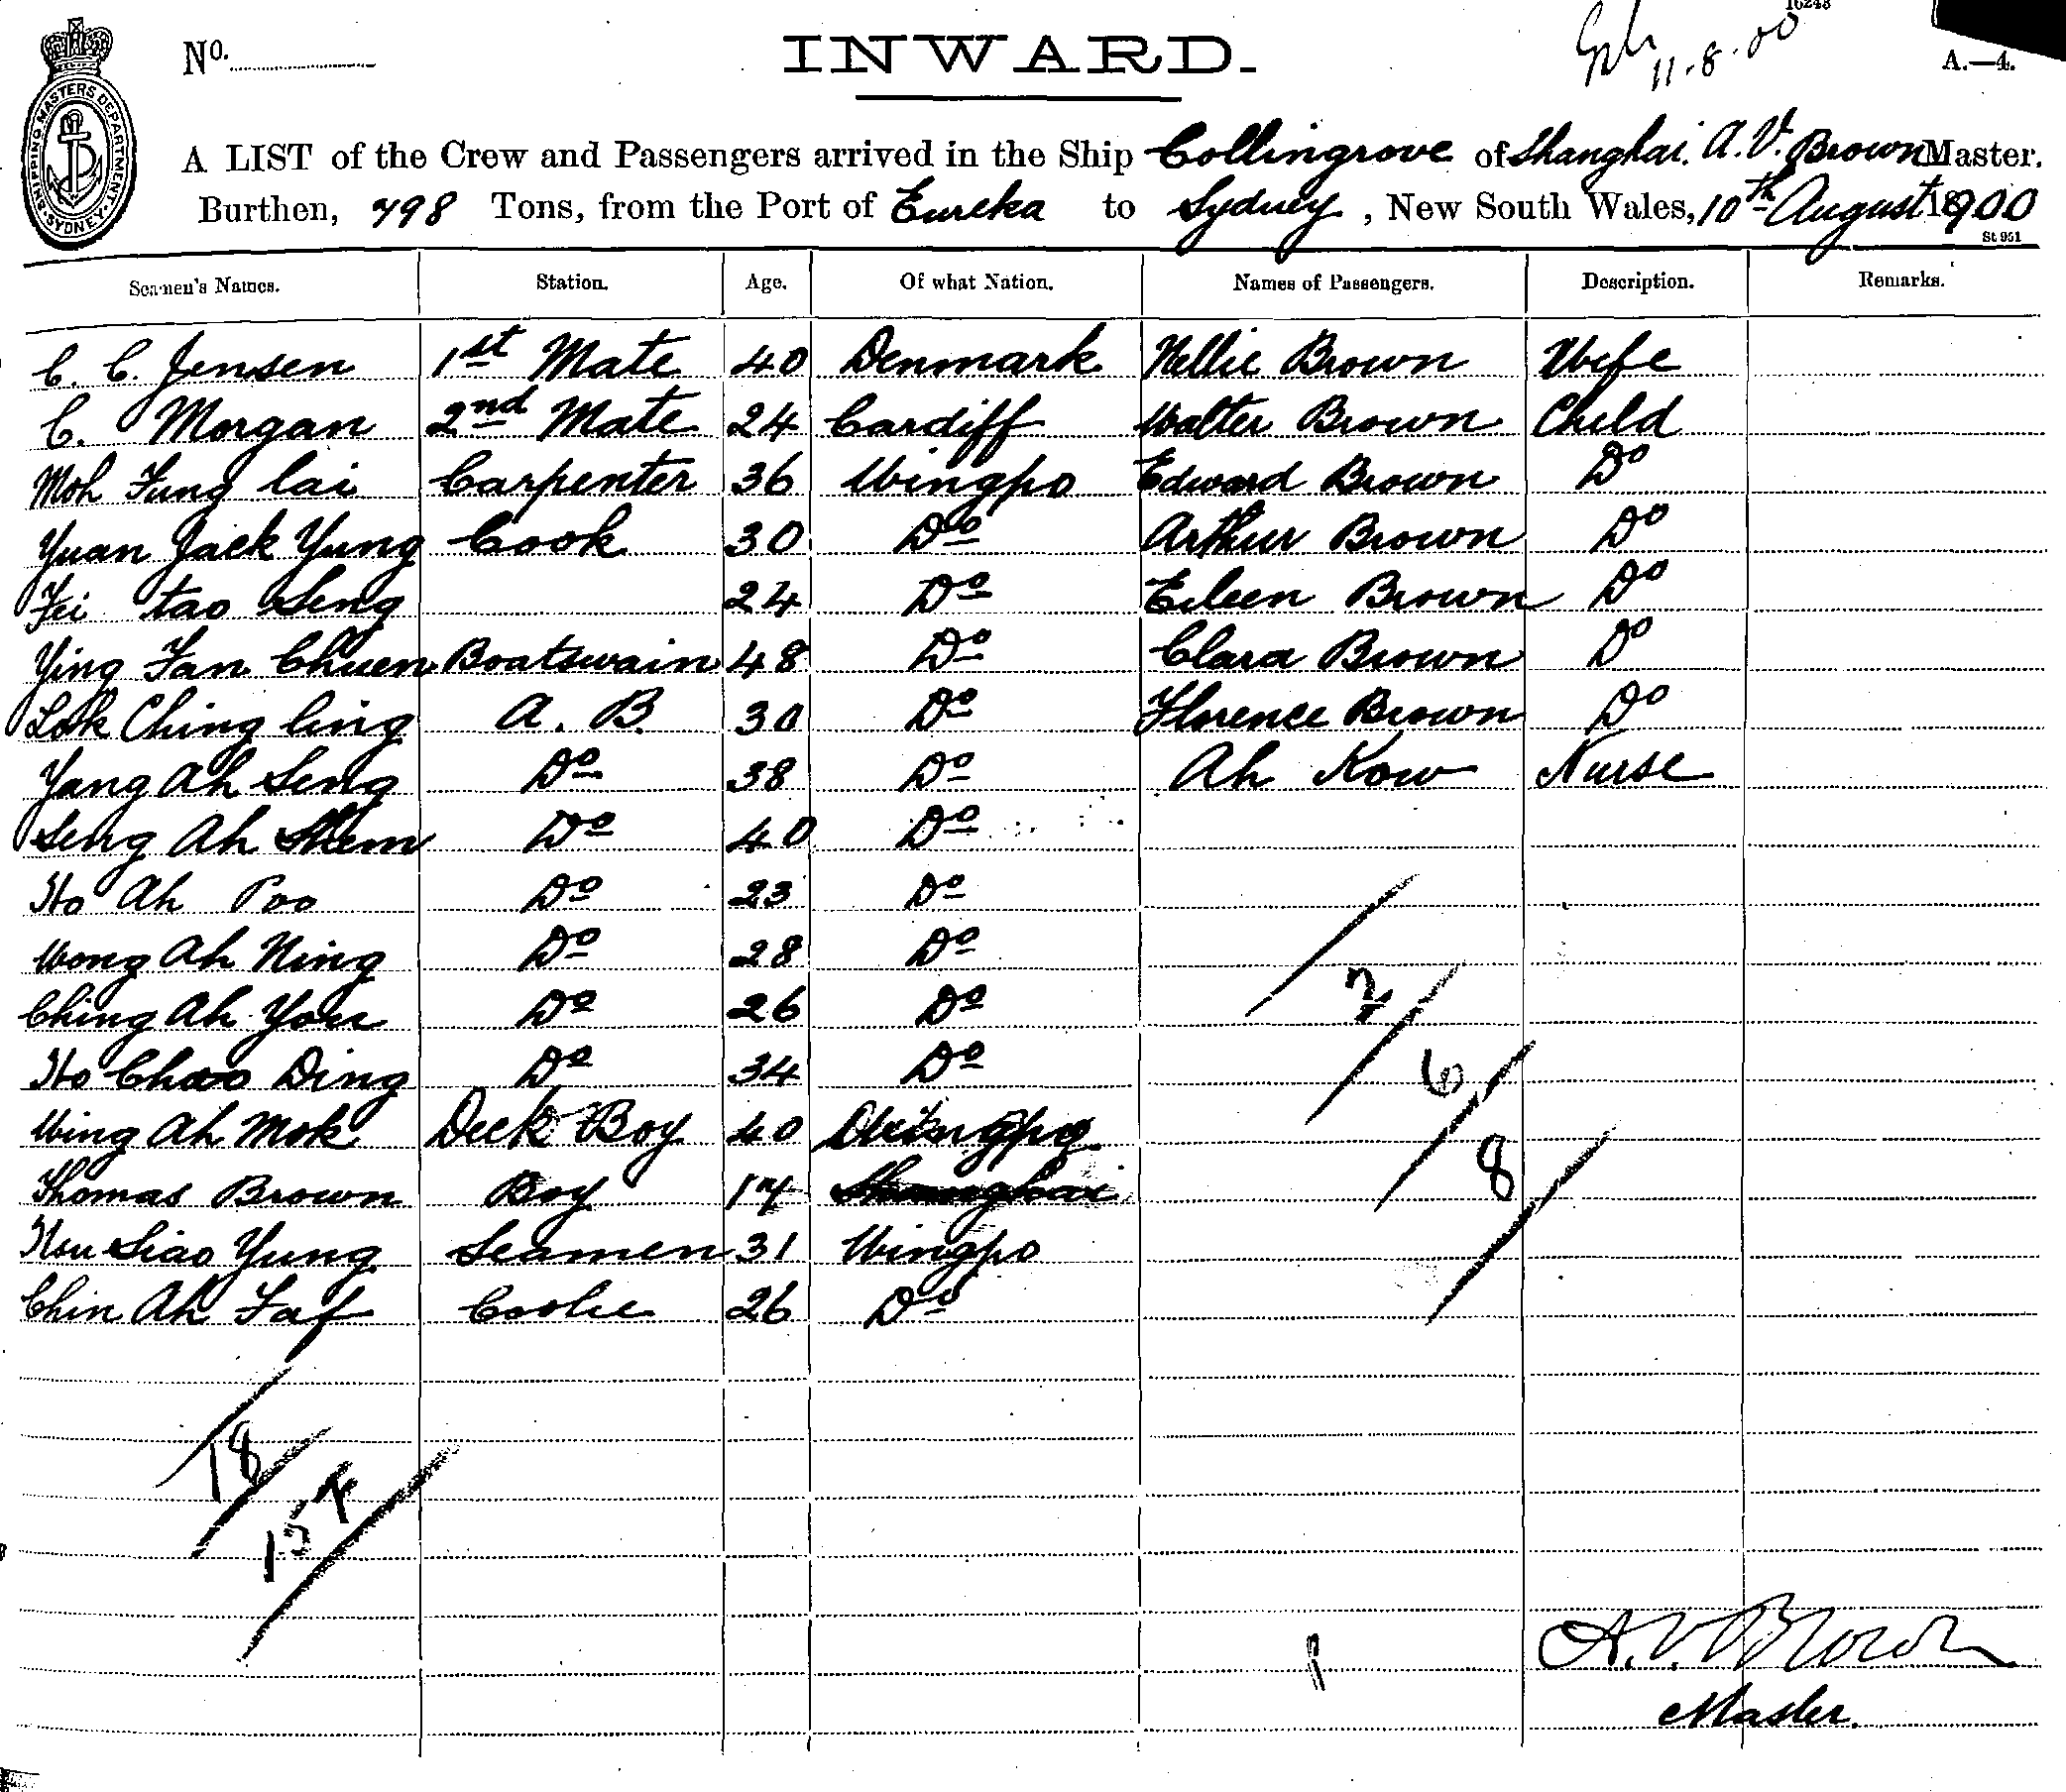 16248
No.
INWARD.
11-8-00
A.—4.
SHIPPING MASTERS DEPARTMENT SYDNEY
A LIST of the Crew and Passengers arrived in the Ship Collingrove of Shanghai. A. V. Brown Master.
Burthen, 798 Tons, from the Port of Eureka to Sydney, New South Wales, 10th August 1900
St 951
Seamen's Names. Station. Age. Of what Nation. Names of Passengers. Description. Remarks.
C. C. Jensen 1st Mate 40 Denmark Nellie Brown Wife
C. Morgan 2nd Mate 24 Cardiff Walter Brown Child
Moh Fung lai Carpenter 36 Ningpo Edward Brown Do
Yuan Jack Yung Cook 30 Do Arthur Brown Do
Fei tao Seng 24 Do Eileen Brown Do
Ying Fan Chuen Boatswain 48 Do Clara Brown Do
Lok Ching ling A. B. 30 Do Florence Brown Do
Yang Ah Seng Do 38 Do Ah Kow Nurse
Seng Ah Shem Do 40 Do
Ho Ah Poo Do 23 Do
Wong Ah Ning Do 28 Do
Ching Ah You Do 26 Do
Ho Chao Ding Do 34 Do
Ning Ah Mok Deck Boy 40 Ningpo
Thomas Brown Boy 17 Shanghai
Hsu Siao Yung Seamen 31 Ningpo
Chin Ah Faf Coolie 26 Do
2
6
8
18
15
A. V. Brown
Master.